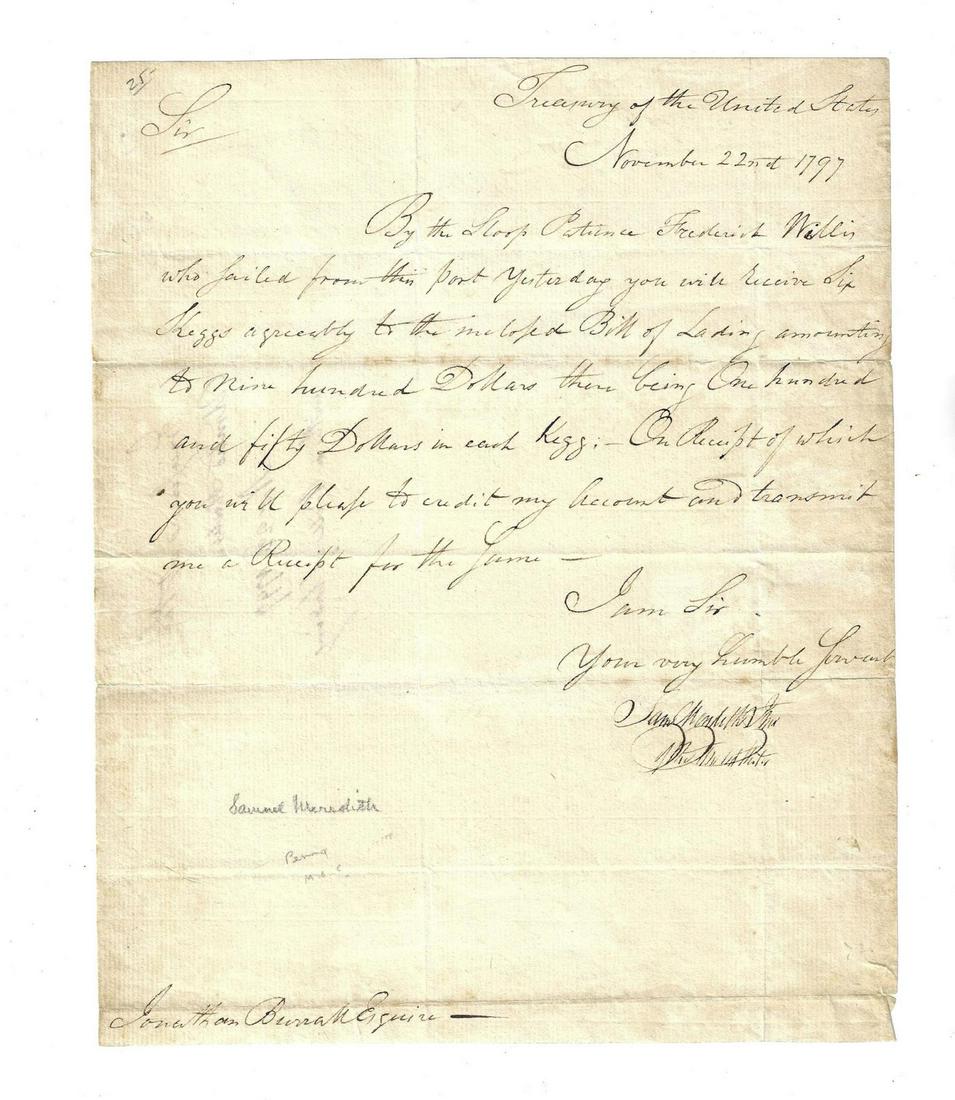 25/
Sir
Treasury of the United States
November 22nd 1797
By the Sloop Patience Frederick Willis
who sailed from this port Yesterday you will receive Six
Keggs agreeably to the inclosed Bill of Lading amounting
to Nine hundred Dollars there being One hundred
and fifty Dollars in each Kegg; — On Receipt of which
you will please to credit my Account and transmit
me a Receipt for the Same —
I am Sir
Your very humble Servant
Sam Meredith
Samuel Meredith
Penna
M.O.C.
Jonathan Burrall Esquire —